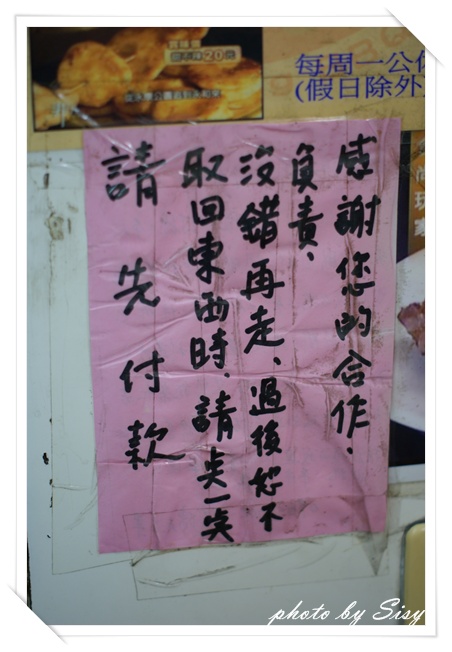 每周一公休
(假日除外)
請先付款
取回東西時.請点一点
沒錯再走、過後恕不
負責、
感謝您的合作.
photo by Sisy